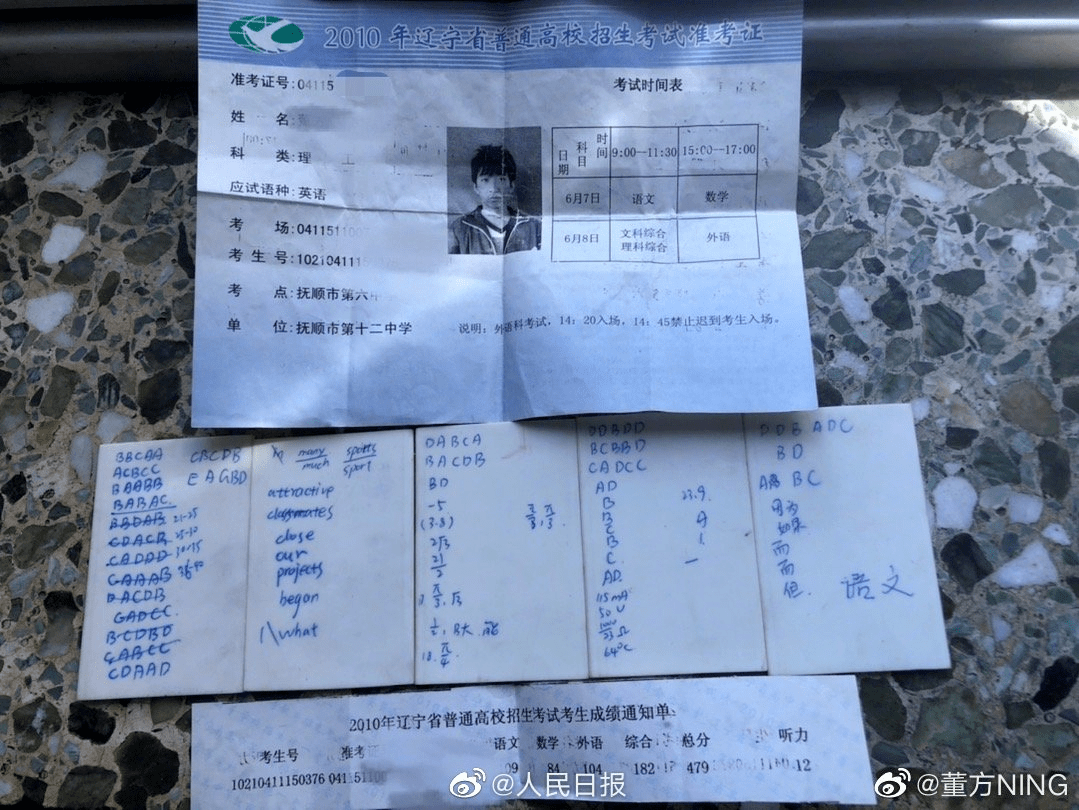 2010 年辽宁省普通高校招生考试准考证
准考证号:04115
姓 名:
科 类:理
应试语种:英语
考 场:0411511007
考 生 号:102104111
考 点:抚顺市第六
单 位:抚顺市第十二中学
考试时间表
时间 科目 日期 9:00--11:30 15:00--17:00
6月7日 语文 数学
6月8日 文科综合 理科综合 外语
说明:外语科考试,14:20入场,14:45禁止迟到考生入场。
BBCAA CBCDB
ACBCC EAGBD
BAABB
BABAC
BBDAB 21-25
CDACB 25-30
CADDD 30-35
CAAAB 36-40
DACDB
GADEC
BCDBD
CABCC
CDAAD
many sports
much sport
attractive
classmates
close
our
projects
began
what
DABCA
BACDB
BD
-5
(3.8)
2√3
21/2
π/3, √3
1/2, B大, 能
18. π/4
DDBDD
BCBBD
CADCC
AD
B 23.9
B
C
AD
115mA
50V
64℃
DDB ADC
BD
BC
因为
如果
而
而
但
语文
2010年辽宁省普通高校招生考试考生成绩通知单
考生号 准考证 语文 数学 外语 综合 总分 听力
10210411150376 04115110 09 84 104 182 479 12
@人民日报
@董方NING